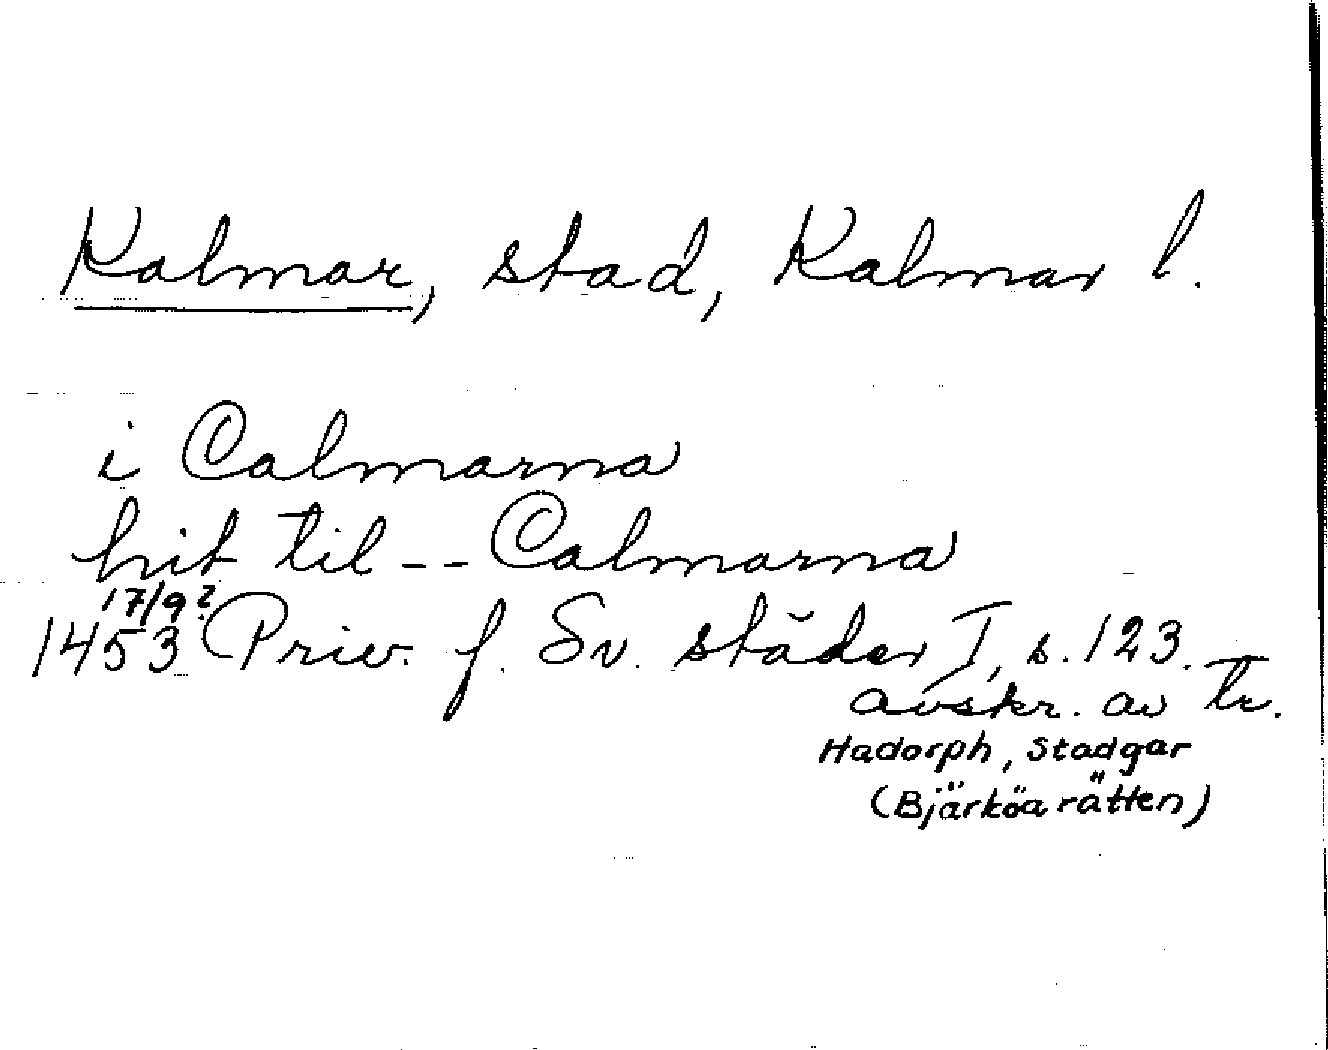 Kalmar, stad, Kalmar l.
i Calmarna
hit til -- Calmarna
17/9?
1453 Priv. f. Sv. städer I, s. 123.
avskr. av tr.
Hadorph, Stadgar
(Bjärköa rätten)